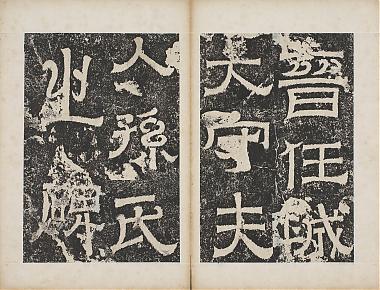 晉任城
大守夫
人孫氏
之碑